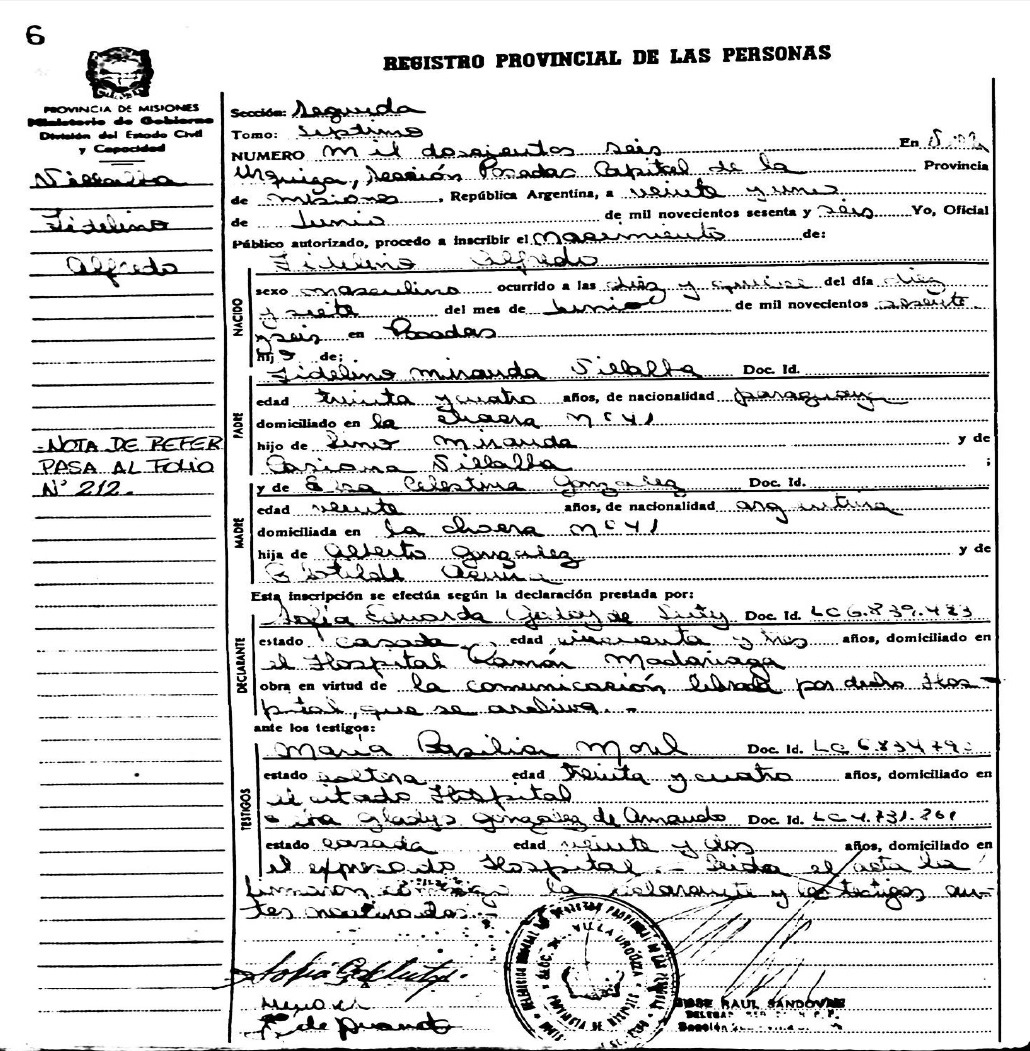 6
REGISTRO PROVINCIAL DE LAS PERSONAS
PROVINCIA DE MISIONES
Ministerio de Gobierno
División del Estado Civil
y Capacidad
Villalba
Fidelino
Alfredo
- NOTA DE REFER
PASA AL FOLIO
Nº 212.
Sección: Segunda
Tomo: Septimo
NUMERO mil doscientos seis En Villa
Urquiza, Sección Posadas Capital de la Provincia
de misiones, República Argentina, a veinte y uno
de Junio de mil novecientos sesenta y seis Yo, Oficial
Público autorizado, procedo a inscribir el nacimiento de:
Fidelino Alfredo
NACIDO
sexo masculino ocurrido a las diez y quince del día diez
y siete del mes de Junio de mil novecientos sesenta
y seis en Posadas
hijo de:
Fidelino miranda Villalba Doc. Id.
PADRE
edad treinta y cuatro años, de nacionalidad paraguay
domiciliado en la chacra nº 41
hijo de Miranda y de
Villalba ;
y de Elsa Celestina Gonzalez Doc. Id.
MADRE
edad veinte años, de nacionalidad argentina
domiciliada en la chacra nº 41
hija de Alberto Gonzalez y de
Clotilde Acuña
Esta inscripción se efectúa según la declaración prestada por:
DECLARANTE
Sofía Eduarda Godoy de Doc. Id. LC 6.839.423
estado casada edad cincuenta y tres años, domiciliado en
el Hospital Ramón Madariaga
obra en virtud de la comunicación librada por dicho Hos-
pital, que se archiva. -
ante los testigos:
TESTIGOS
María Basilia Morel Doc. Id. LC
estado soltera edad treinta y cuatro años, domiciliado en
el citado Hospital
Gladys Gonzalez de Doc. Id. LC 4.731.261
estado casada edad veinte y dos años, domiciliado en
el expresado Hospital - Leída el acta la
la declarante y los testigos an-
tes nombrados.
VILLA URQUIZA
PROVINCIA DE MISIONES
RAUL SANDOVAL